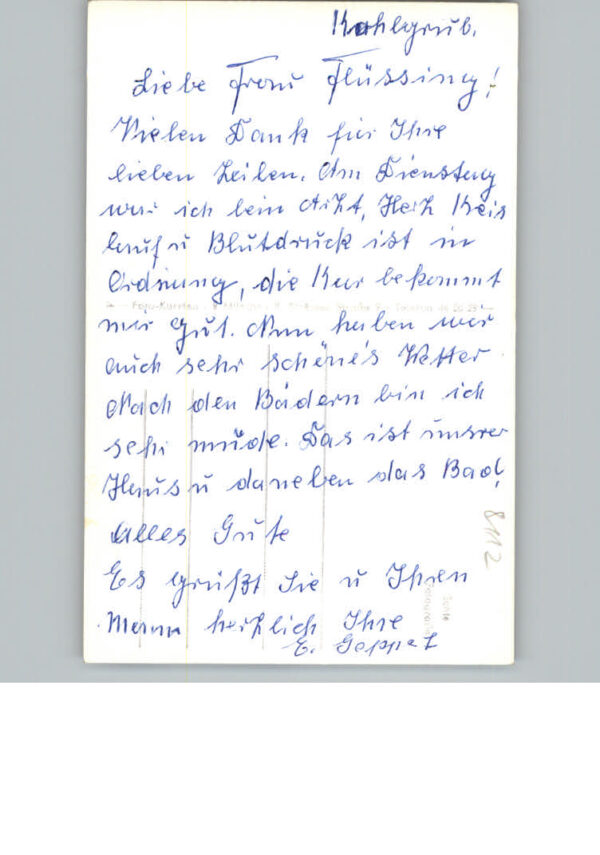 Kohlgrub.
Liebe Frau Flüssing!
Vielen Dank für Ihre
lieben Zeilen. Am Dienstag
war ich beim Arzt, Herz Kreis
lauf u Blutdruck ist in
Ordnung, die Kur bekommt
mir gut. Nun haben wir
auch sehr schönes Wetter
Nach den Bädern bin ich
sehr müde. Das ist unser
Haus u daneben das Bad,
Alles Gute
Es grüßt Sie u Ihren
Mann herzlich Ihre
E. Goppel
8112